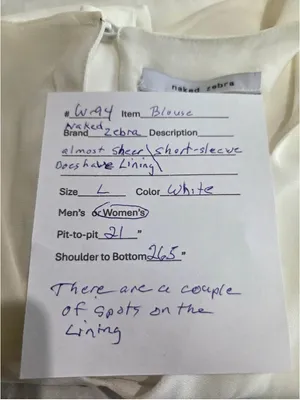 naked zebra
# W-94 Item Blouse
Naked
Brand Zebra Description
almost sheer\short-sleeve
Does have Lining\
Size L Color White
Men's or Women's
Pit-to-pit 21 "
Shoulder to Bottom 26.5"
There are a couple
of spots on the
Lining